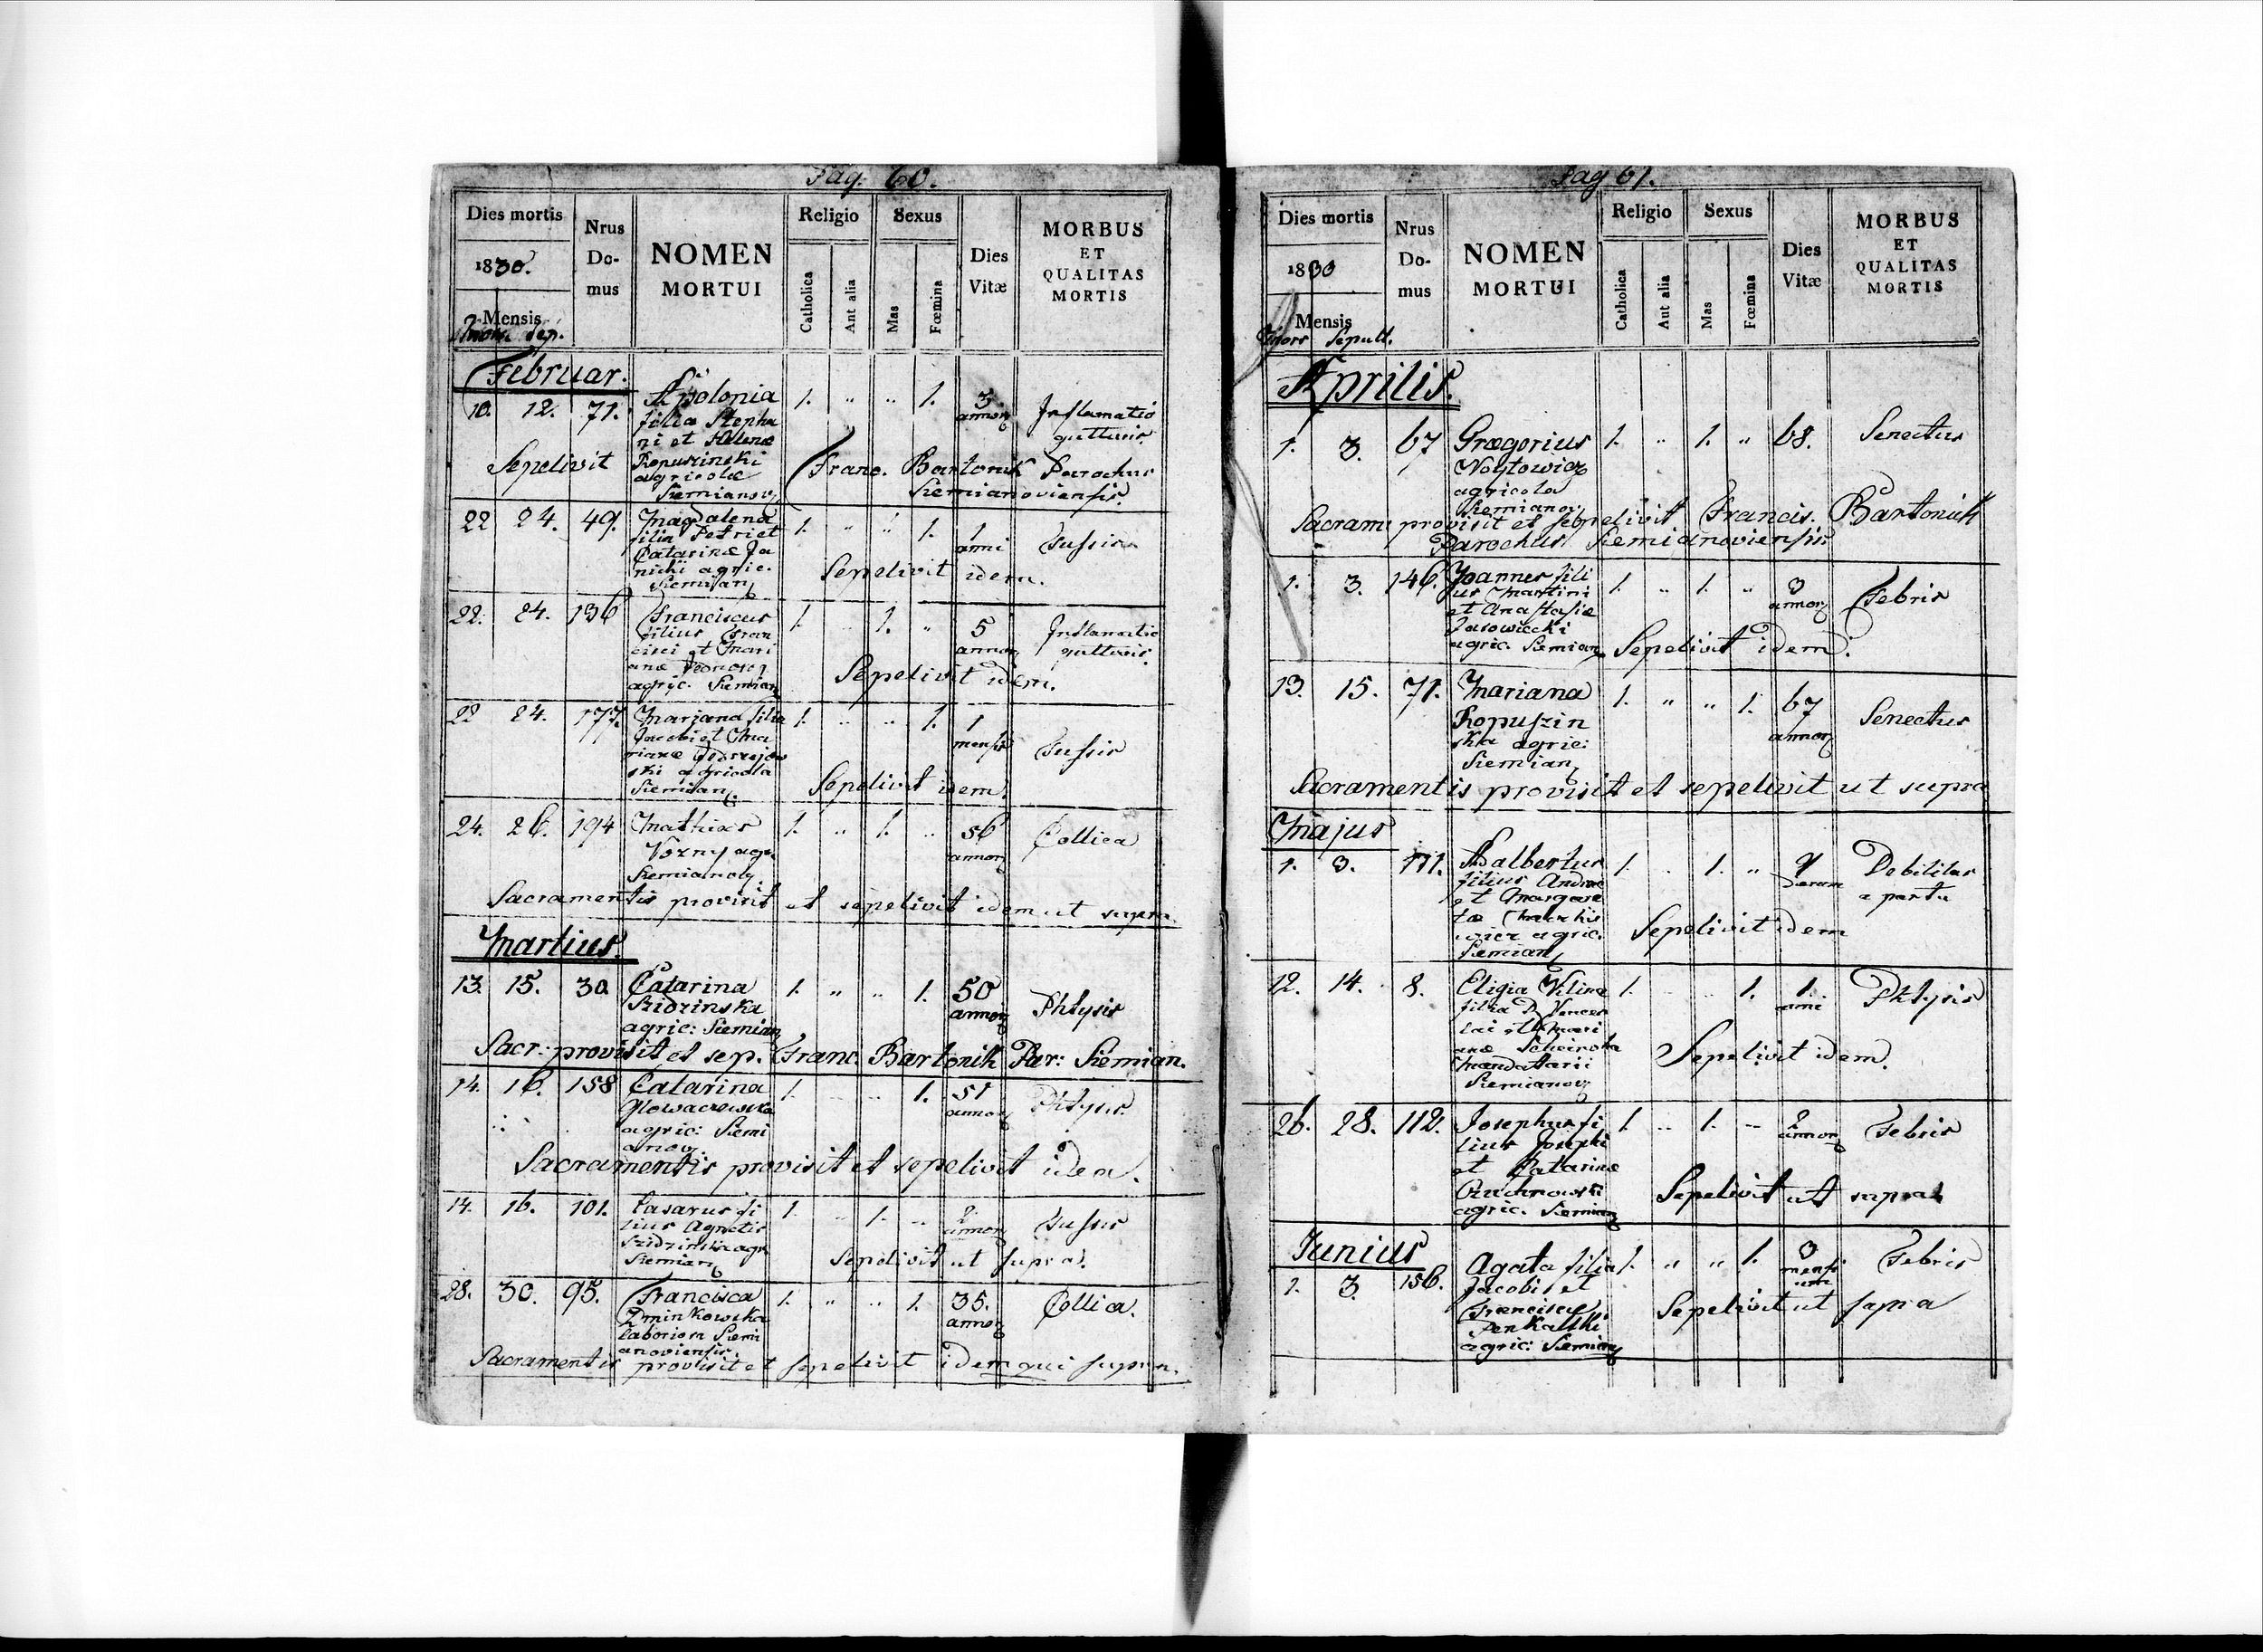 Pag. 60.
Dies mortis
1830.
Mensis
sep.
Nrus
Do-
mus
NOMEN
MORTUI
Religio
Catholica
Aut alia
Sexus
Mas
Fœmina
Dies
Vitæ
MORBUS
ET
QUALITAS
MORTIS
Februar.
10. 12. 71. Apolonia 1. " " 1. 3 annor Inflamatio gutturis
filia Stepha
ni et Helenæ
Ropuszinski
agricolæ
Siemianov
Sepelivit Franc. Bartonik Parochus
Siemianoviensis.
22 24. 49. Magdalena 1. " " 1. 1 anni Tussis
filia Petri et
Catarinæ Ja
nicki agric.
Siemian
Sepelivit idem.
22. 24. 136 Franciscus 1. " 1. " 5 annor Inflamatio gutturis
filius Fran
cisci et Mari
anæ
agric. Siemian
Sepelivit idem.
22 24. 177. Mariana filia 1. " " 1. 1 mensis Tussis
Jacobi et Ma
rianæ
ski agricola
Siemian.
Sepelivit idem.
24. 26. 194 Mathias 1. " 1. " 56 annor Collica
Vozny agr.
Siemianov
Sacramentis provisit et sepelivit idem ut supra
Martius.
13. 15. 30. Catarina 1. " " 1. 50 annor Phtysis
Szidzinska
agric: Siemian
Sacr: provisit et sep. Franc. Bartonik Par: Siemian.
14. 16. 158 Catarina 1. " " 1. 51 annor Phtysis
Glowaczewska
agric: Siemi
anov.
Sacramentis provisit et sepelivit idem.
14. 16. 101. Lasarus fi 1. " 1. " 2. annor Tussis
lius Agnetis
Szidzinska agr
Siemian
Sepelivit ut supra.
28. 30. 95. Francisca 1. " " 1. 35. annor Collica.
Dminkowska
laboriosa Siemi
anoviensis.
Sacramentis provisit et sepelivit idem qui supra.
Pag 61.
Dies mortis
1830
Mensis
Mors Sepult.
Nrus
Do-
mus
NOMEN
MORTUI
Religio
Catholica
Aut alia
Sexus
Mas
Fœmina
Dies
Vitæ
MORBUS
ET
QUALITAS
MORTIS
Aprilis.
1. 3. 67 Gregorius 1. " 1. " 68. Senectus
Woytowicz
agricola
Siemianov
Sacram: provisit et sepelivit Francis. Bartonik
Parochus Siemianoviensis
1. 3. 146. Joannes fili 1. " 1. " 3 annor Febris
us Martini
et Anastasiæ
Jasowiecki
agric. Siemian
Sepelivit idem.
13. 15. 71. Mariana 1. " " 1. 67 annor Senectus
Ropuszin
ska agric:
Siemian
Sacramentis provisit et sepelivit ut supra
Majus
1. 3. 171. Adalbertus 1. " 1. " 9 dierum Debilitas a partu
filius Andreæ
et Margare
tæ
wicz agric.
Siemian
Sepelivit idem
12. 14. 8. Eligia 1. " " 1. 1. anni Phtysis
filia D. Vences
lai et Mari
anæ
Mandatarii
Siemianov
Sepelivit idem.
26. 28. 112. Josephus fi 1. " 1. " 2 annor Febris
lius Josephi
et Catarinæ
agric. Siemian
Sepelivit ut supra
Junius
1. 3. 156. Agata filia 1. " " 1. 3 mensi um Febris
Jacobi et
Franciscæ
Penkalski
agric: Siemian
Sepelivit ut supra